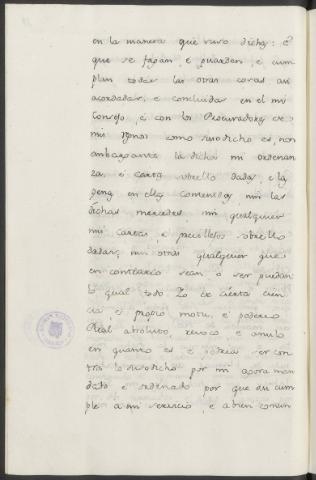 en la manera que suso dicha: é
que se fagan e guarden, e cum
plan todas las otras cosas asi
acordadas, e concluidas en el mi
Consejo, é con los Procuradores de
mis Regnos como susodicho es, non
embargante la dicha mi ordenan
za, é carta sobrello dada, e lo
en ellas contenido, nin las
dichas mercedes, nin qualquier
mi cartas, e previllejos sobrello
dadas, nin otras qualquier que
en contrario sean o ser puedan
lo qual todo Yo de cierta cien
cia, é propio motu, é poderio
Real absoluto, revoco e anulo
en quanto es é podria ser con
tra lo susodicho por mi agora man
dado e ordenado por que asi cum
ple a mi servicio, e a bien comun